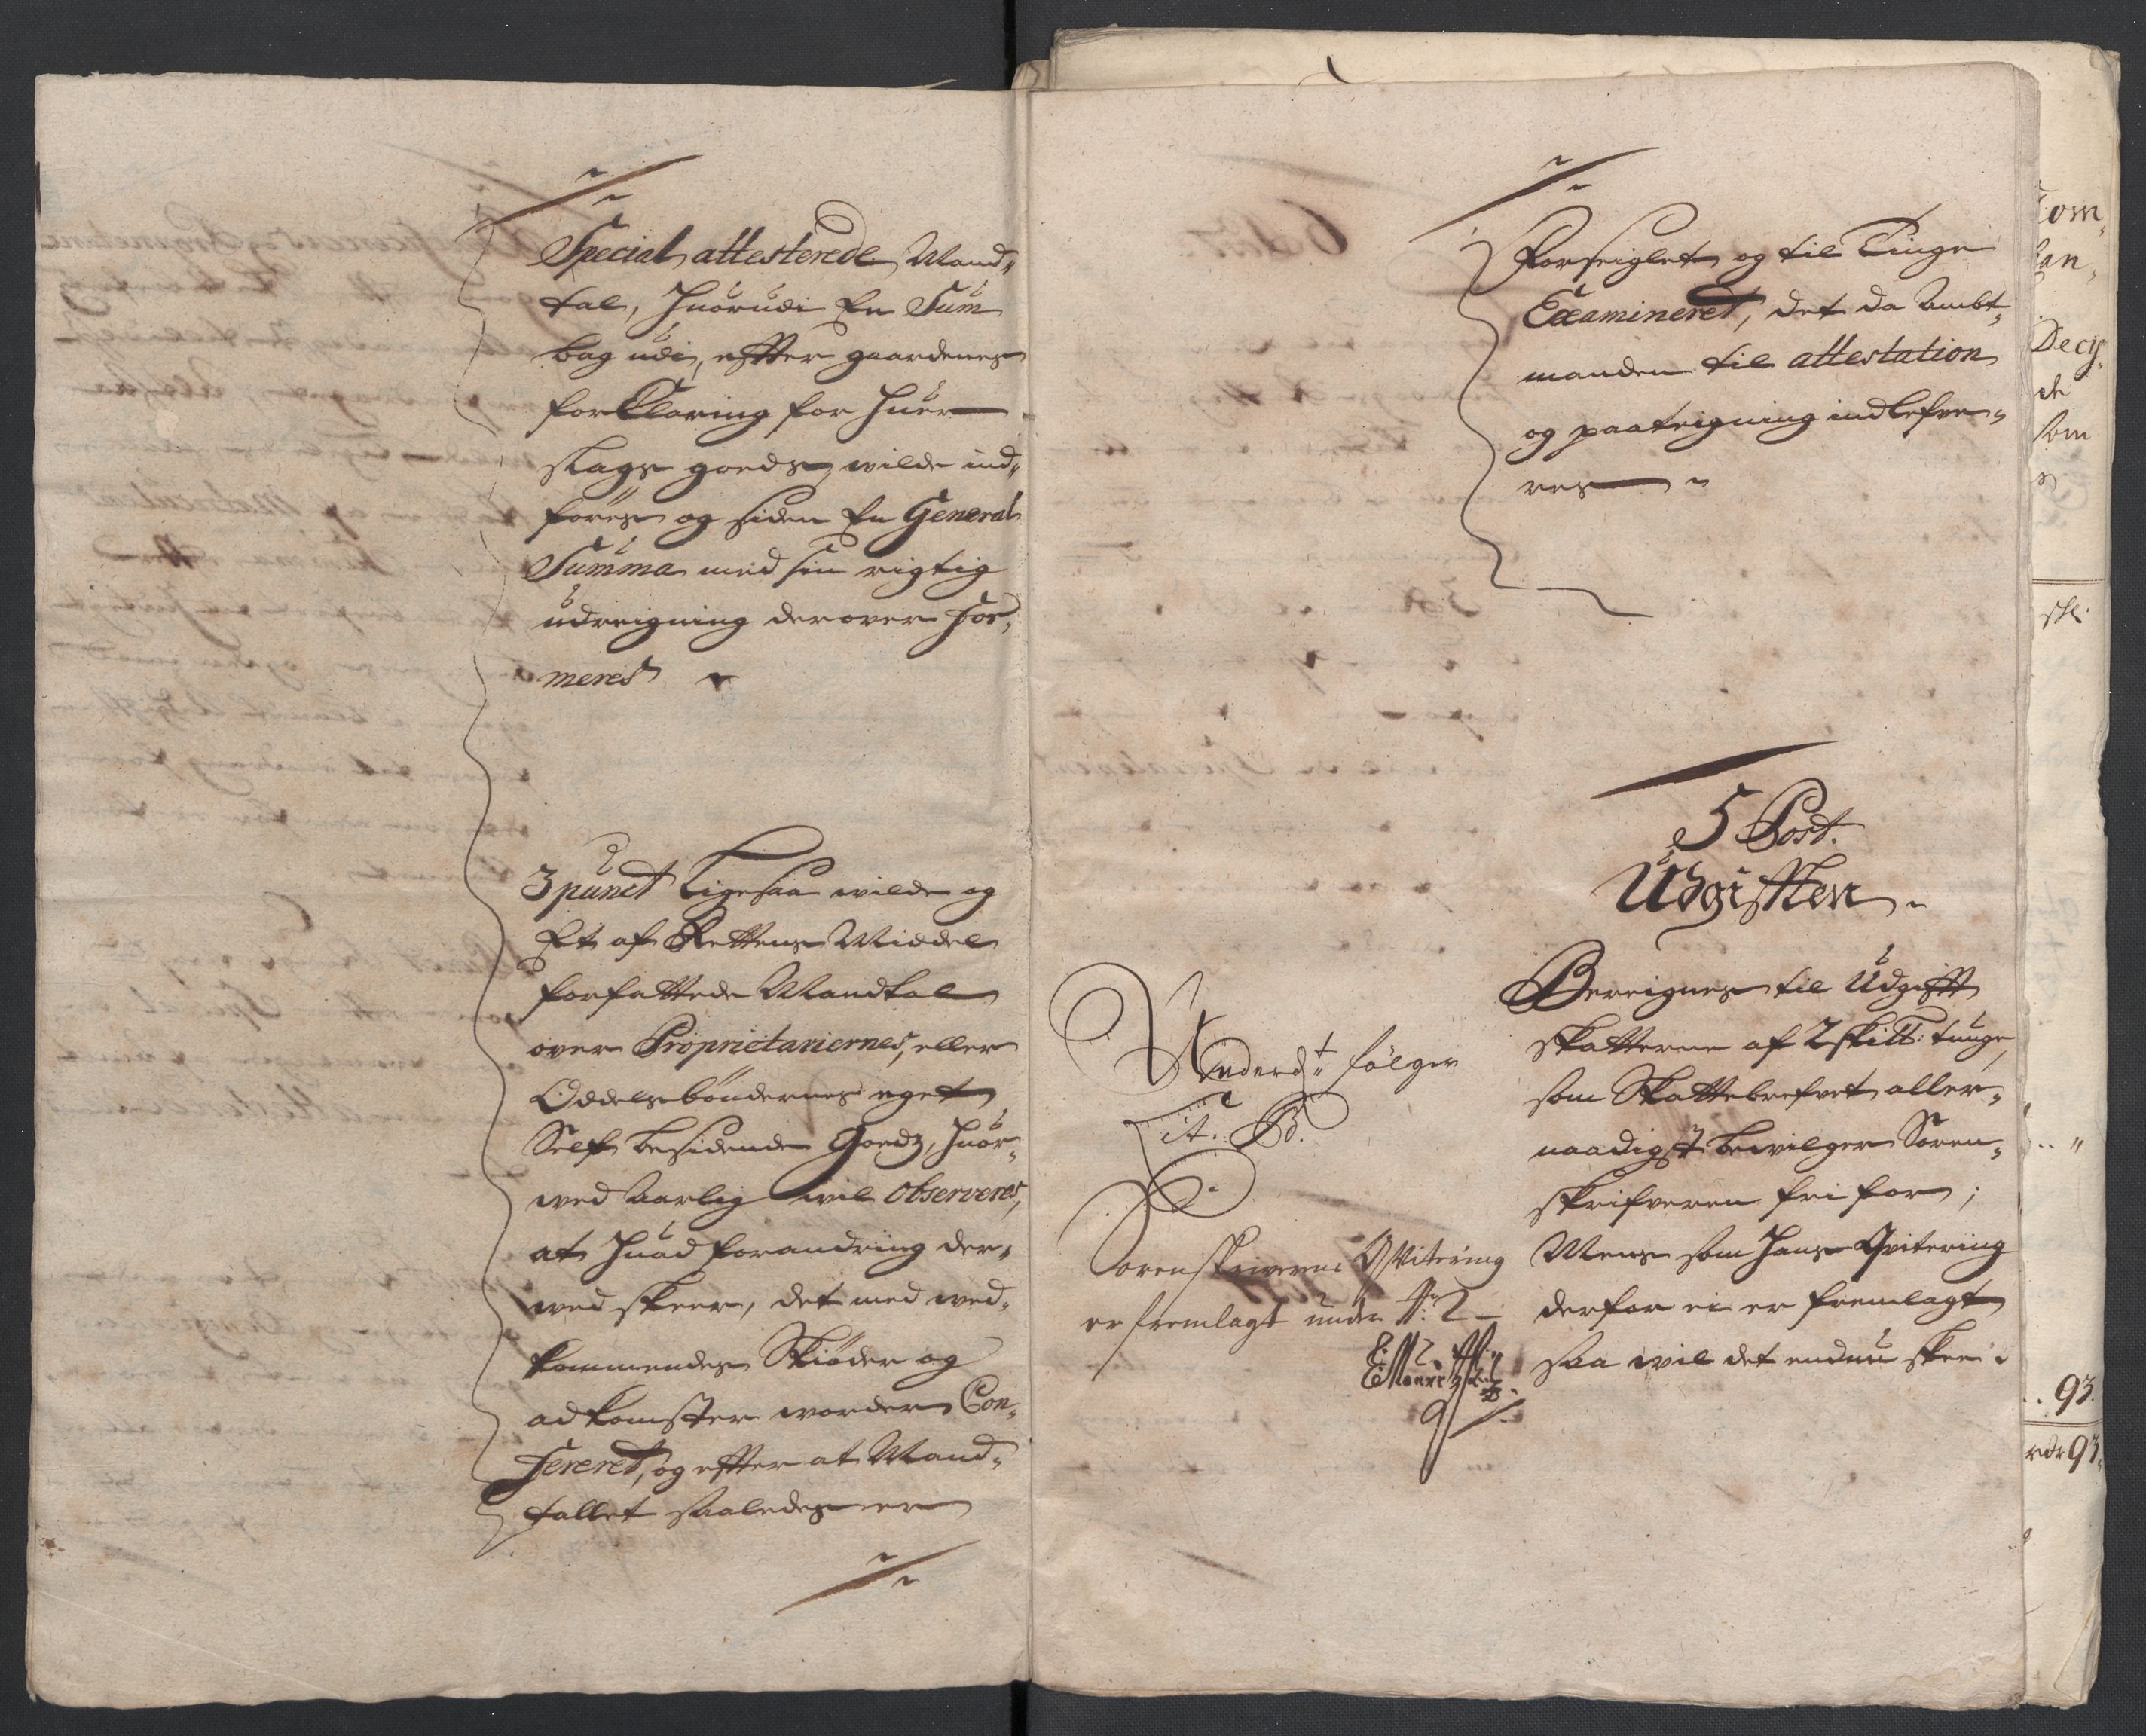 Special attesterede Mand„
tal, huorudi En Sum
bag udi, effter gaardenes
forklaring for huer
slags goeds wilde ind„
föres og siden En General
Summa med sin rigtig
udreigning derover For„
meres

3 punct Ligesaa wilde og
Et af Rettens Middel
forfattede Mandtal
over Proprietariernes, eller
Oddelsböndernes eget
Self besidende Goedz, huor„
ved Aarlig wil observeres,
at huad forandring der„
ved skeer, det med ved„
kommendes Skiöder og
adkomster worder Con„
fereret, og effter at Mand„
tallet saaledes er

Forseiglet og til Tinge
Examineret, det da Ambt„
manden til attestation
og paateigning indlefve„
res

5 Post.
Udgifften

Bereignes til Udgifft
skatterne af 2 skill: tunge,
som Skattebrefvet aller„
naadigst bewilger Soren„
skrifveren fri for;
Mens som hans Qvitering
derfor ei er fremlagt
saa wil det endnu skee

følger
Lit. B.
Sorenskriverens Qvitering
er fremlagt under No: 2

om„
an„
Decis„
de
som
93.
93.